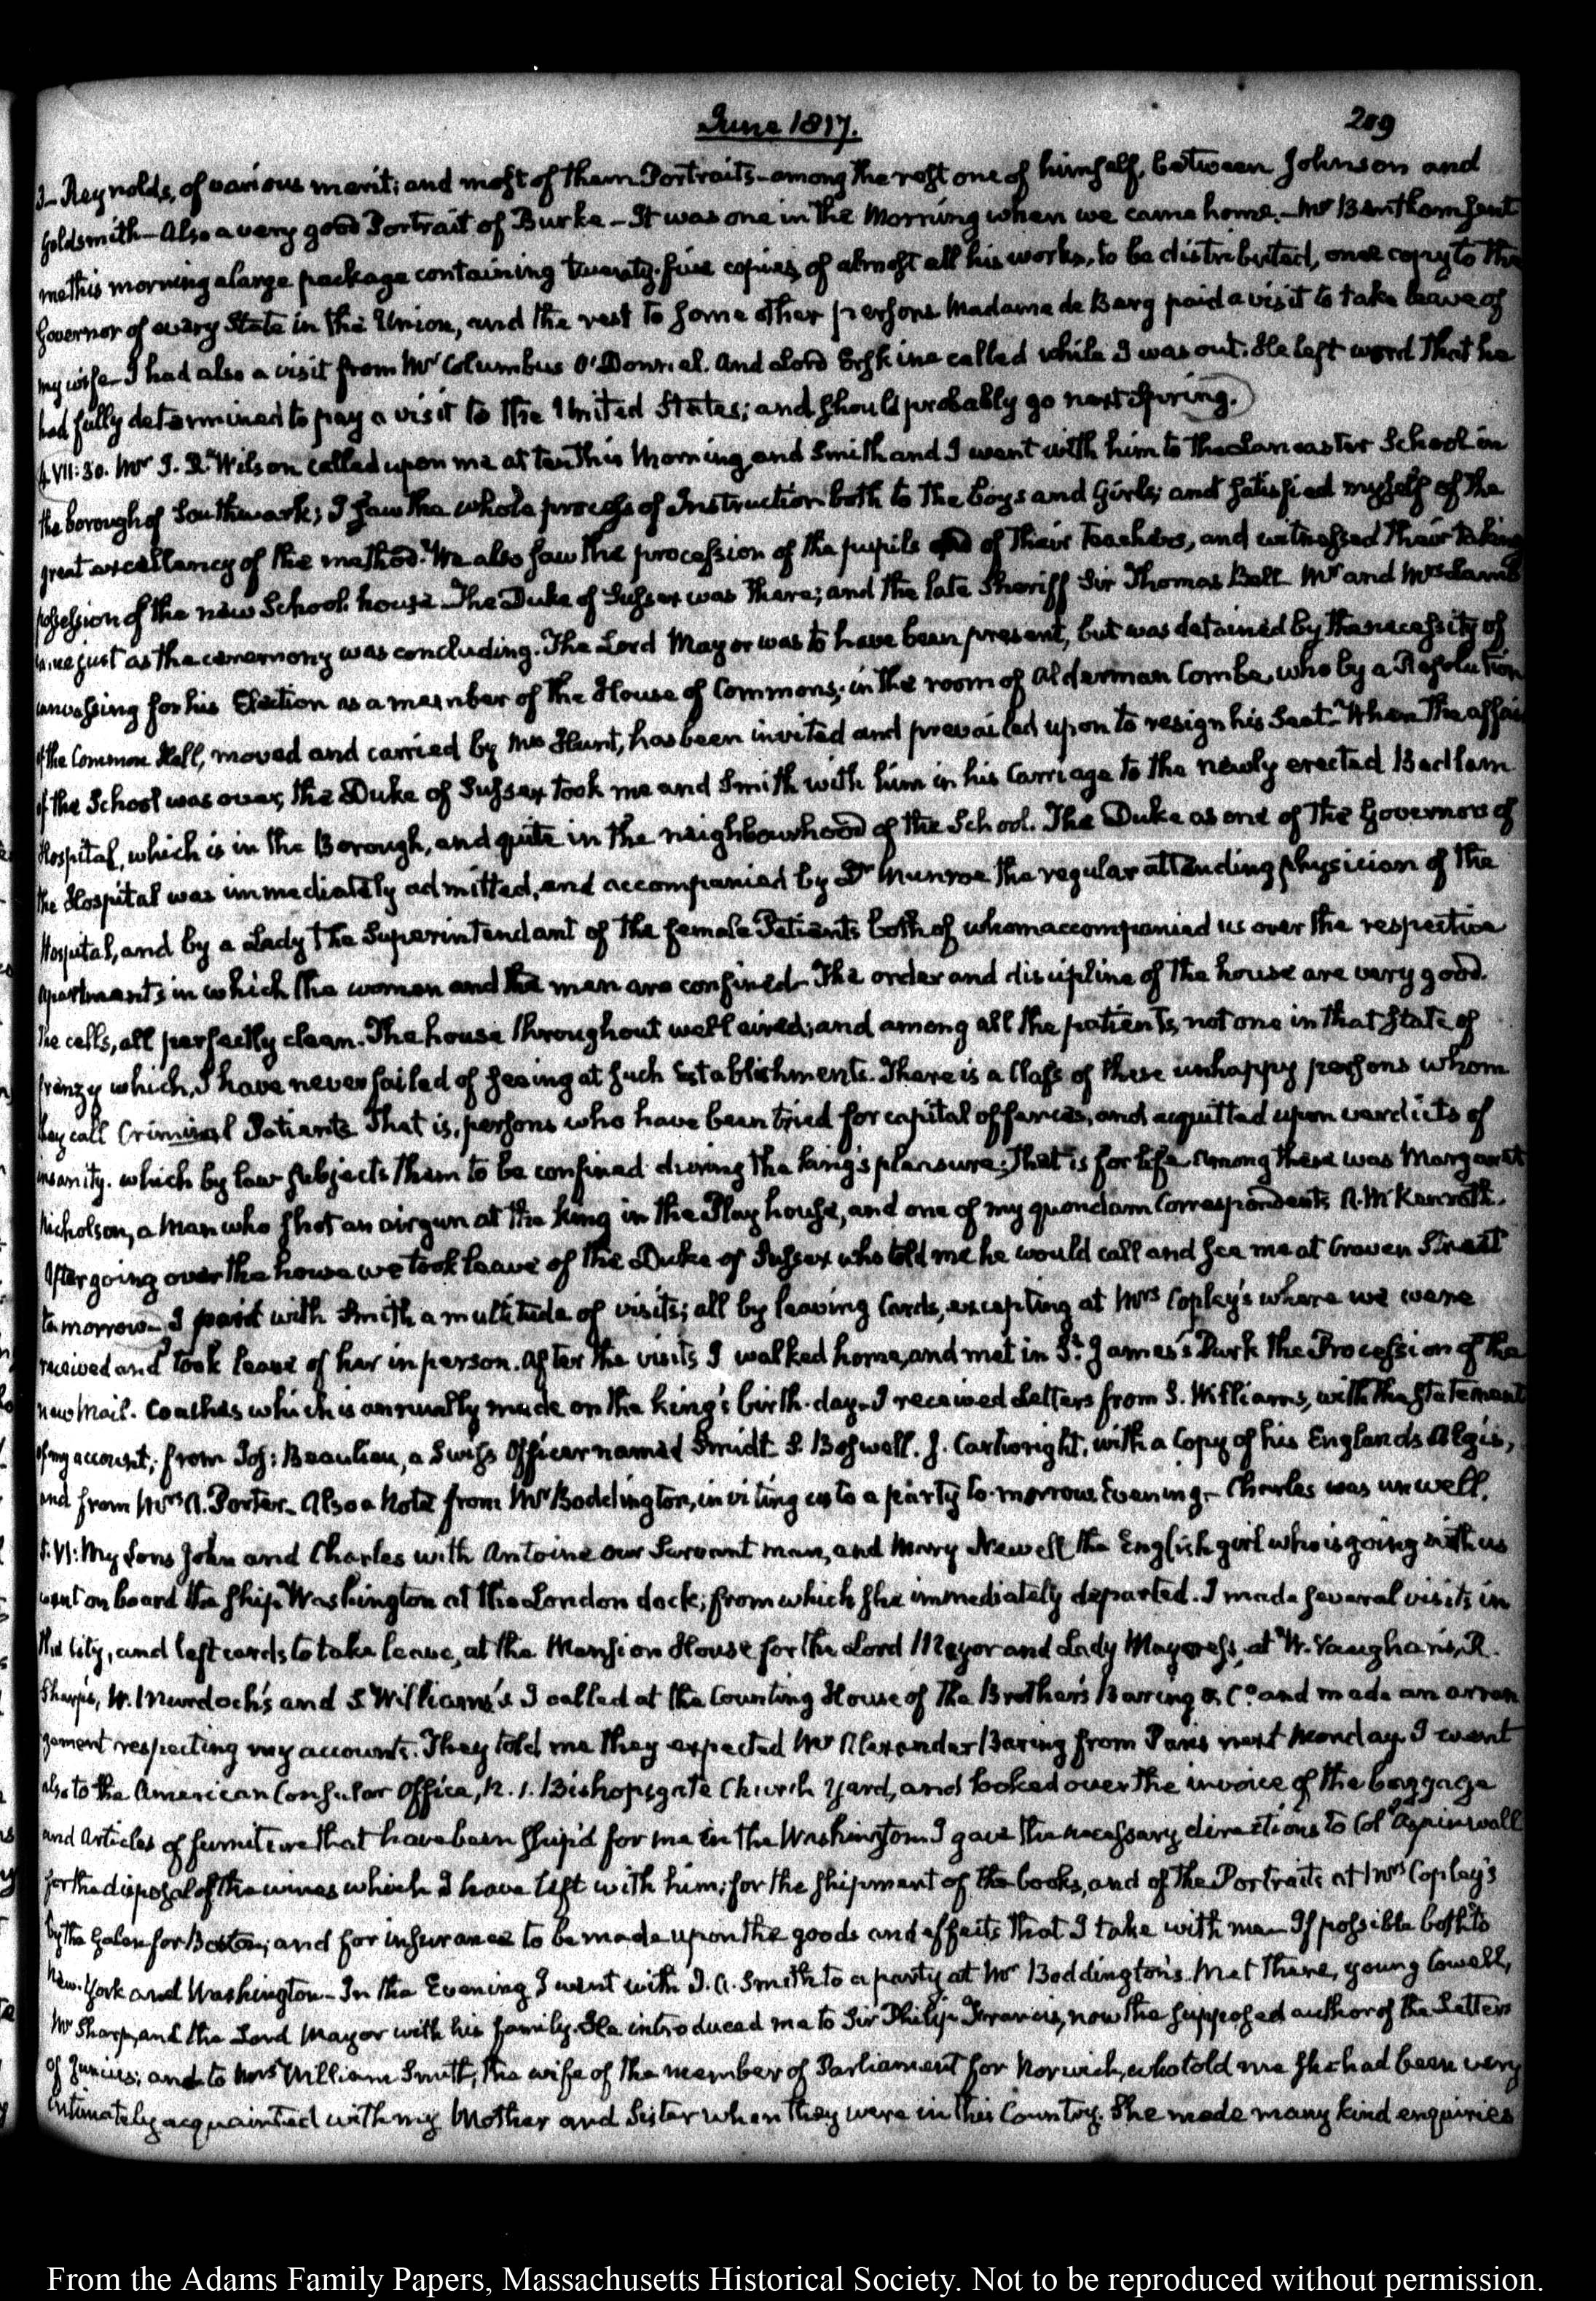 June 1817.
209
J— Reynolds, of various merit; and most of them Portraits—among the rest one of himself, between Johnson and
Goldsmith—Also a very good Portrait of Burke—It was one in the Morning when we came home.—Mr Bentham sent
me this morning a large package containing twenty-five copies of almost all his works, to be distributed, one copy to the
Governor of every State in the Union, and the rest to some other persons Madame de Berg paid a visit to take leave of
my wife—I had also a visit from Mr Columbus O'Donnel. And Lord Erskine called while I was out. He left word that he
had fully determined to pay a visit to the United States; and should probably go next Spring.
4. VII:30. Mr J. R. Wilson called upon me at ten this Morning, and Smith and I went with him to the Lancaster School in
the borough of Southwark; I saw the whole process of Instruction both to the boys and Girls; and satisfied myself of the
great excellency of the method. We also saw the procession of the pupils and of their teachers, and witnessed their taking
possession of the new School house. The Duke of Sussex was there; and the late Sheriff Sir Thomas Bell Mr and Mrs Lamb
came just as the ceremony was concluding. The Lord Mayor was to have been present, but was detained by the necessity of
canvassing for his Election as a member of the House of Commons; in the room of Alderman Combe, who by a Resolution
of the Common Hall, moved and carried by Mr Hunt, has been invited and prevailed upon to resign his Seat. When the affair
of the School was over, the Duke of Sussex took me and Smith with him in his Carriage to the newly erected Bedlam
Hospital, which is in the Borough, and quite in the neighbourhood of the School. The Duke as one of the Governors of
the Hospital was immediately admitted, and accompanied by Dr Munroe the regular attending physician of the
Hospital, and by a Lady the Superintendant of the female Patients both of whom accompanied us over the respective
apartments in which the women and the men are confined. The order and discipline of the house are very good.
The cells, all perfectly clean. The house throughout well aired; and among all the patients, not one in that state of
frenzy which, I have never failed of seeing at such Establishments. There is a Class of these unhappy persons whom
they call Criminal Patients That is, persons who have been tried for capital offences, and acquitted upon verdicts of
insanity. which by law subjects them to be confined during the king's pleasure; that is for life. Among these was Margaret
Nicholson, a Man who shot an airgun at the King in the Play house, and one of my quondam Correspondents A. McKenrott.
After going over the house we took leave of the Duke of Sussex who told me he would call and see me at Craven Street
tomorrow—I paid with Smith a multitude of visits; all by leaving Cards, excepting at Mrs Copley's where we were
received and took leave of her in person. After the visits I walked home, and met in St. James's Park the Procession of the
new Mail-Coaches which is annually made on the king's birth-day. I received Letters from S. Williams, with the Statement
of my account; from Jos: Beaulieu, a Swiss Officer named Smidt S. Boswell. J. Cartwright, with a Copy of his Englands Ægis,
and from Mrs A. Porter—Also a Note from Mr Boddington, inviting us to a party to-morrow Evening.—Charles was unwell.
5. VI: My Sons John and Charles with Antoine our Servant man, and Mary Newell the English girl who is going with us
went on board the ship Washington at the London dock; from which she immediately departed. I made several visits in
the City, and left cards to take leave, at the Mansion House for the Lord Mayor and Lady Mayoress, at W. Vaughan's, R.
Sharp's, W. Murdoch's and S. Williams's I called at the Counting House of the Brother's Baring & Co. and made an arran
gement respecting my accounts. They told me they expected Mr Alexander Baring from Paris next Monday. I went
also to the American Consular Office, N. 1. Bishopsgate Church Yard, and looked over the invoice of the baggage
and Articles of furniture that have been ship'd for me in the Washington. I gave the necessary directions to Col. Aspinwall
for the disposal of the wines which I have left with him; for the shipment of the books, and of the Portraits at Mrs Copley's
by the Galen for Boston; and for insurance to be made upon the goods and effects that I take with me—If possible both to
New-York and Washington—In the Evening I went with J. A. Smith to a party at Mr Boddington's. Met there, young Lowell,
Mr Sharp, and the Lord Mayor with his family. He introduced me to Sir Philip Francis, now the supposed author of the Letters
of Junius; and to Mrs William Smith, the wife of the member of Parliament for Norwich, who told me she had been very
intimately acquainted with my Mother and Sister when they were in this Country. She made many kind enquiries
From the Adams Family Papers, Massachusetts Historical Society. Not to be reproduced without permission.